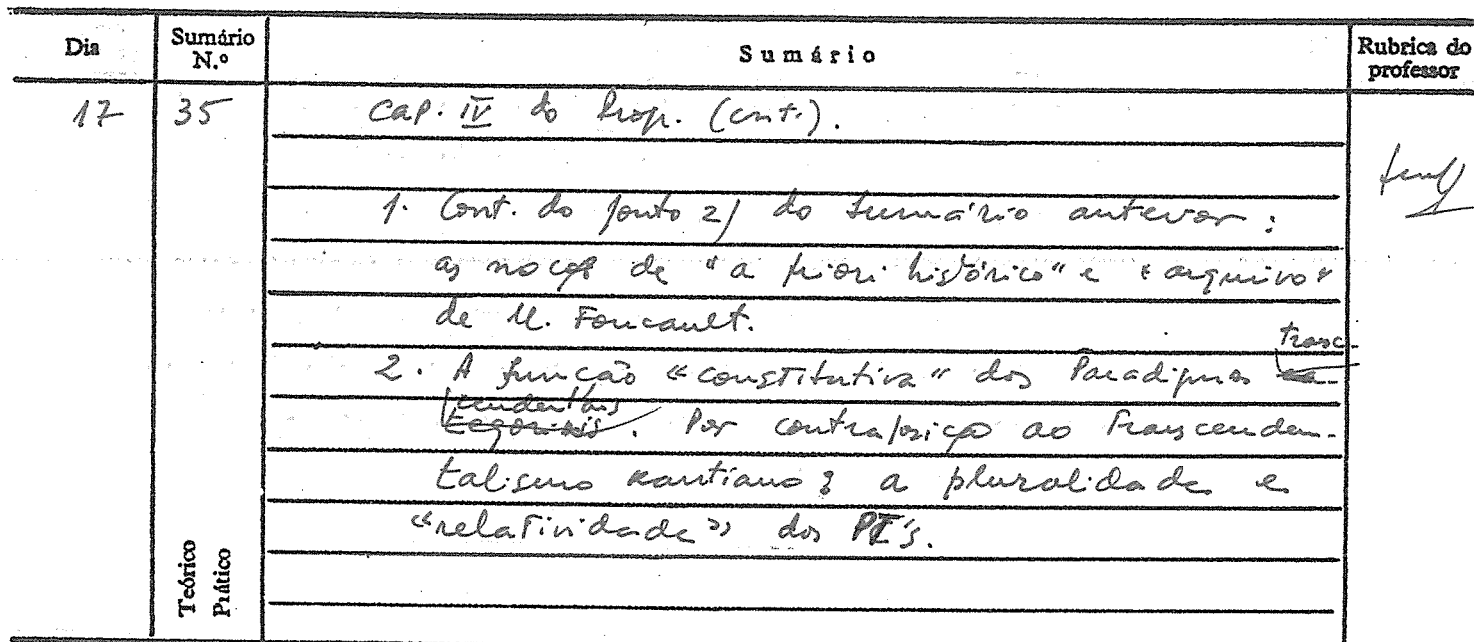 Dia Sumário N.º Sumário Rubrica do professor
17 35 Cap. IV do Prop. (cont.).
1. Cont. do ponto 2) do Sumário anterior:
as noções de "a priori histórico" e "arquivo"
de M. Foucault.
2. A função "constitutiva" dos Paradigmas transc-
cendentais. Por contraposição ao Transcenden-
talismo kantiano: a pluralidade e
"relatividade" dos PT's.
Teórico
Prático